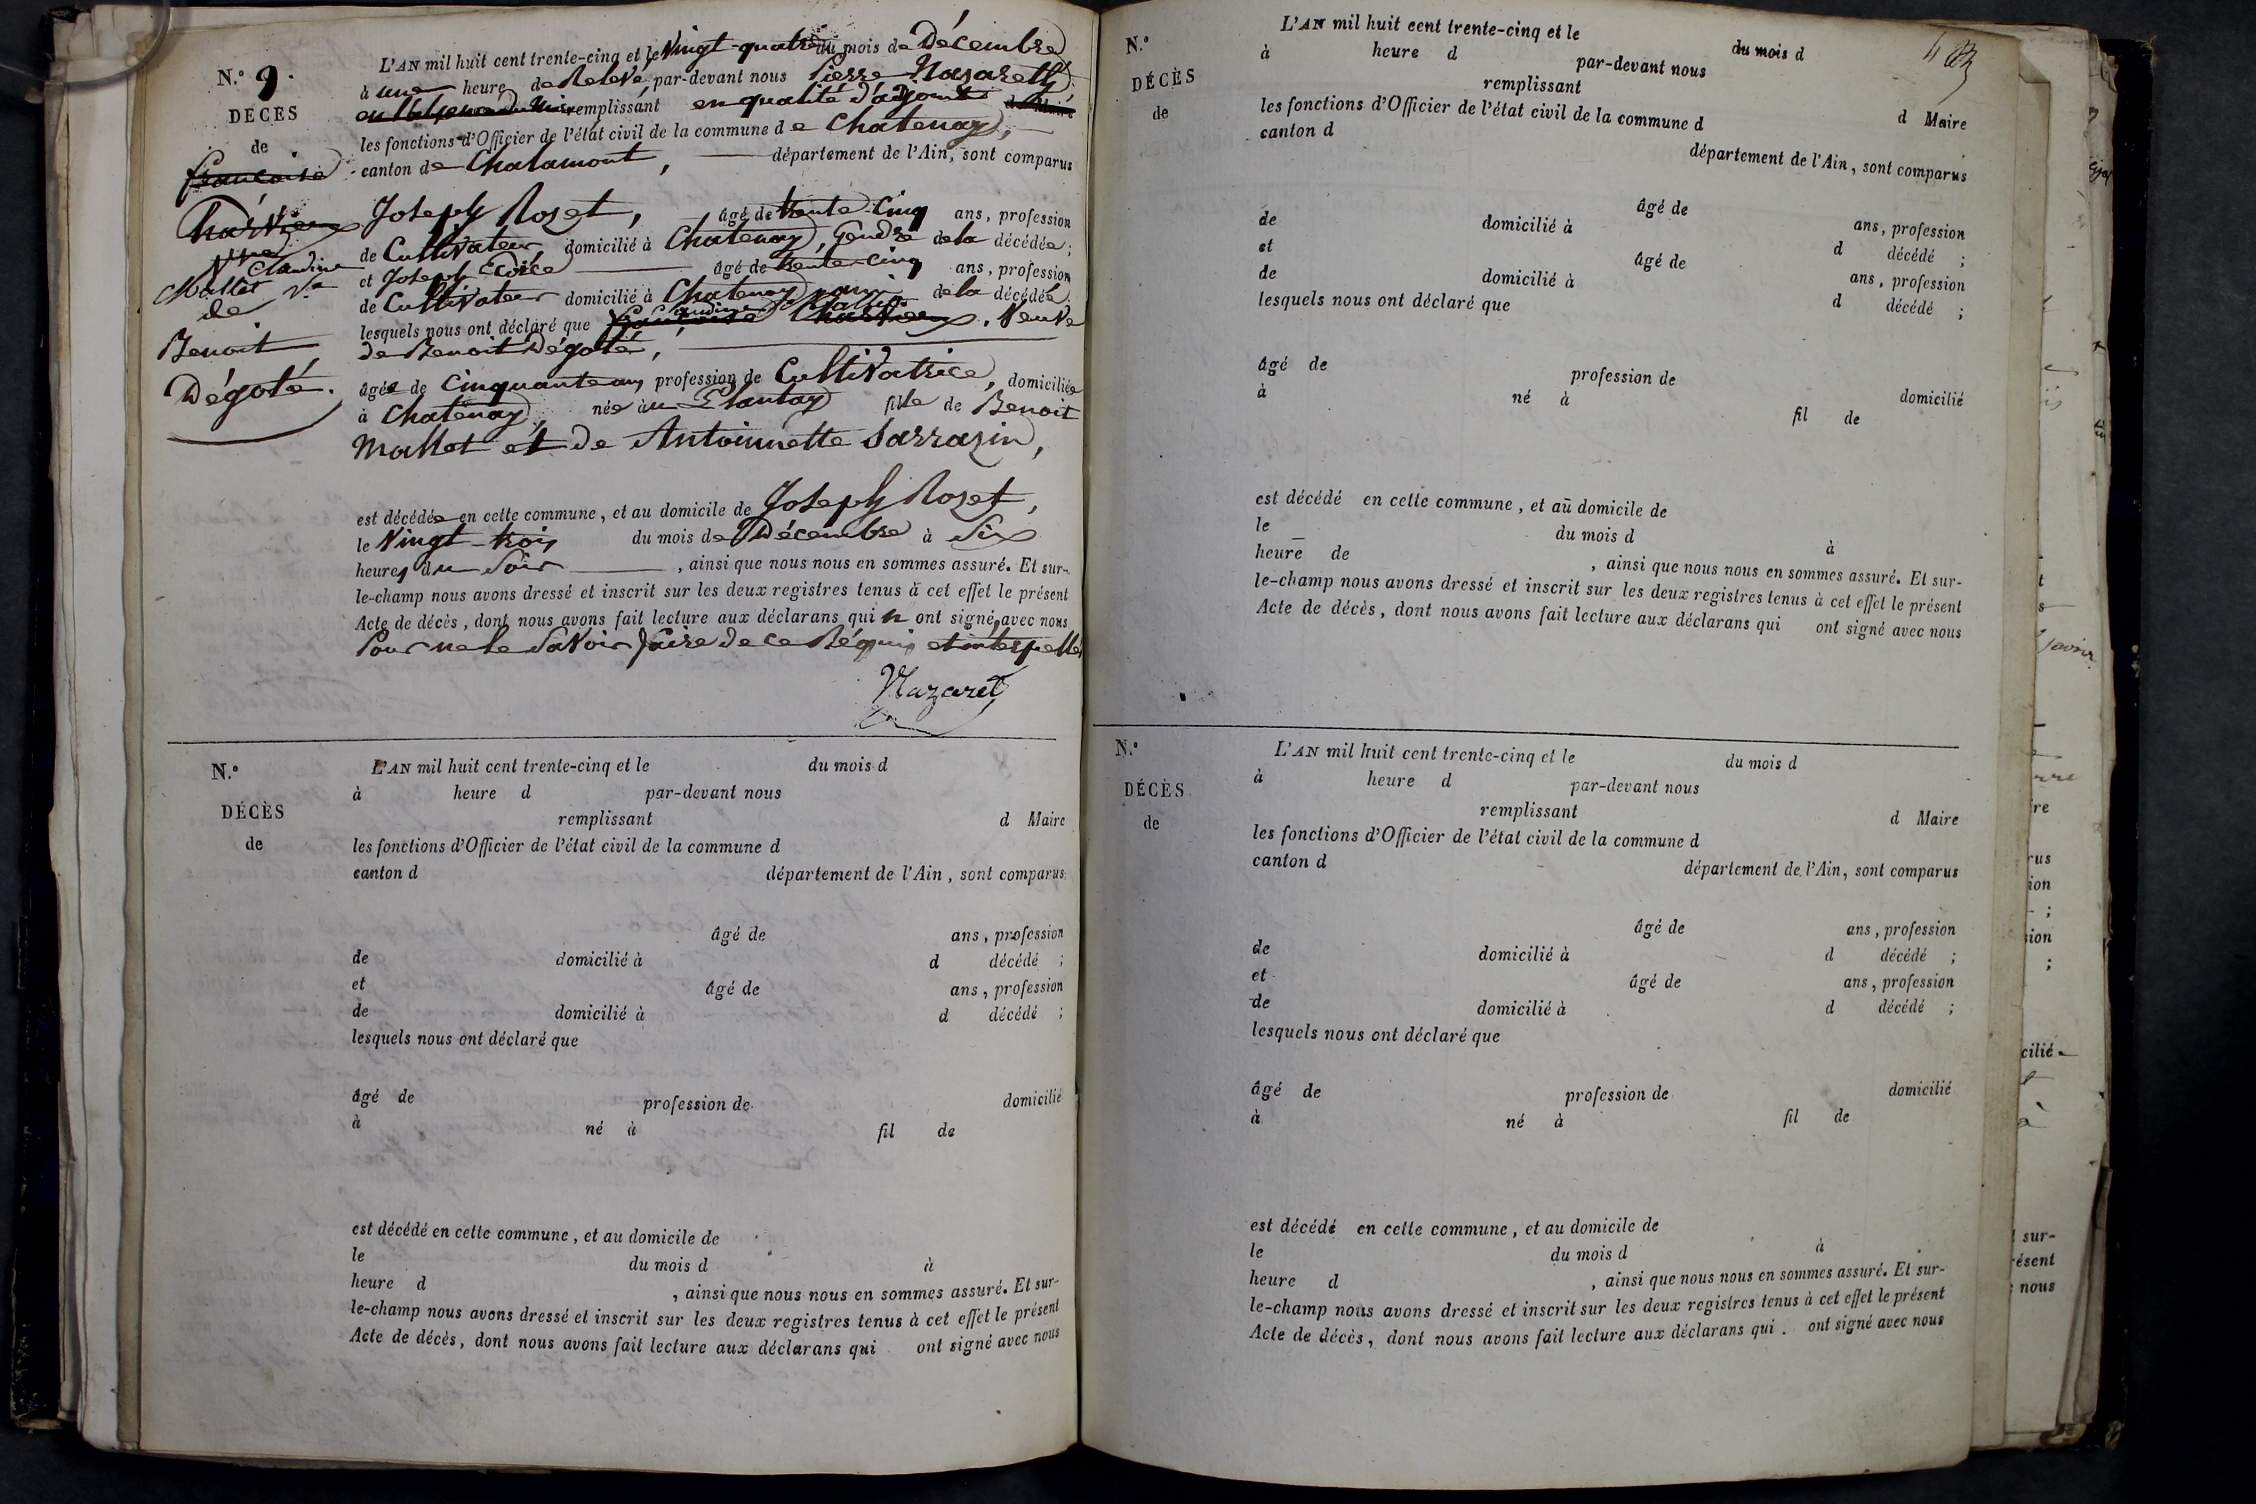 N.° 9.
DÉCÈS
de
françoise
Charvieu
Vve
Claudine
Mallet Ve
de
Benoit
Dégoté.
L'AN mil huit cent trente-cinq et le Vingt-quatre du mois de Décembre
à une heure de Relevé, par-devant nous Pierre Nazareth,
remplissant en qualité d'adjoint d Maire
les fonctions d'Officier de l'état civil de la commune de Chatenay,
canton de Chalamont, département de l'Ain, sont comparus
Joseph Rozet, âgé de trente-Cinq ans, profession
de Cultivateur domicilié à Chatenay, Gendre de la décédée;
et Joseph âgé de trente-cinq ans, profession
de Cultivateur domicilié à Chatenay, ami de la décédée.
Claudine Mallet
lesquels nous ont déclaré que françoise Charvieu, Veuve
de Benoit Dégoté,
âgée de Cinquante ans profession de Cultivatrice, domiciliée
à Chatenay, née au Plantay fille de Benoit
Mallet et de Antoinnette Sarrazin,
est décédée en cette commune, et au domicile de Joseph Rozet,
le Vingt-trois du mois de Décembre à Six
heures du Soir, ainsi que nous nous en sommes assuré. Et sur-
le-champ nous avons dressé et inscrit sur les deux registres tenus à cet effet le présent
Acte de décès, dont nous avons fait lecture aux déclarans qui n ont signé, avec nous
Pour ne le Savoir faire de ce Réquis et interpellés
Nazaret
N.°
DÉCÈS
de
L'AN mil huit cent trente-cinq et le du mois d
à heure d par-devant nous
remplissant d Maire
les fonctions d'Officier de l'état civil de la commune d
canton d département de l'Ain, sont comparus
âgé de ans, profession
de domicilié à d décédé ;
et âgé de ans, profession
de domicilié à d décédé ;
lesquels nous ont déclaré que
âgé de profession de domicilié
à né à fil de
est décédé en cette commune, et au domicile de
le du mois d à
heure d , ainsi que nous nous en sommes assuré. Et sur-
le-champ nous avons dressé et inscrit sur les deux registres tenus à cet effet le présent
Acte de décès, dont nous avons fait lecture aux déclarans qui ont signé avec nous
N.°
DÉCÈS
de
L'AN mil huit cent trente-cinq et le du mois d
à heure d par-devant nous
remplissant d Maire
les fonctions d'Officier de l'état civil de la commune d
canton d département de l'Ain, sont comparus
âgé de ans, profession
de domicilié à d décédé ;
et âgé de ans, profession
de domicilié à d décédé ;
lesquels nous ont déclaré que
âgé de profession de domicilié
à né à fil de
est décédé en cette commune, et au domicile de
le du mois d à
heure de , ainsi que nous nous en sommes assuré. Et sur-
le-champ nous avons dressé et inscrit sur les deux registres tenus à cet effet le présent
Acte de décès, dont nous avons fait lecture aux déclarans qui ont signé avec nous
N.°
DÉCÈS
de
L'AN mil huit cent trente-cinq et le du mois d
à heure d par-devant nous
remplissant d Maire
les fonctions d'Officier de l'état civil de la commune d
canton d département de l'Ain, sont comparus
âgé de ans, profession
de domicilié à d décédé ;
et âgé de ans, profession
de domicilié à d décédé ;
lesquels nous ont déclaré que
âgé de profession de domicilié
à né à fil de
est décédé en cette commune, et au domicile de
le du mois d à
heure d , ainsi que nous nous en sommes assuré. Et sur-
le-champ nous avons dressé et inscrit sur les deux registres tenus à cet effet le présent
Acte de décès, dont nous avons fait lecture aux déclarans qui . ont signé avec nous